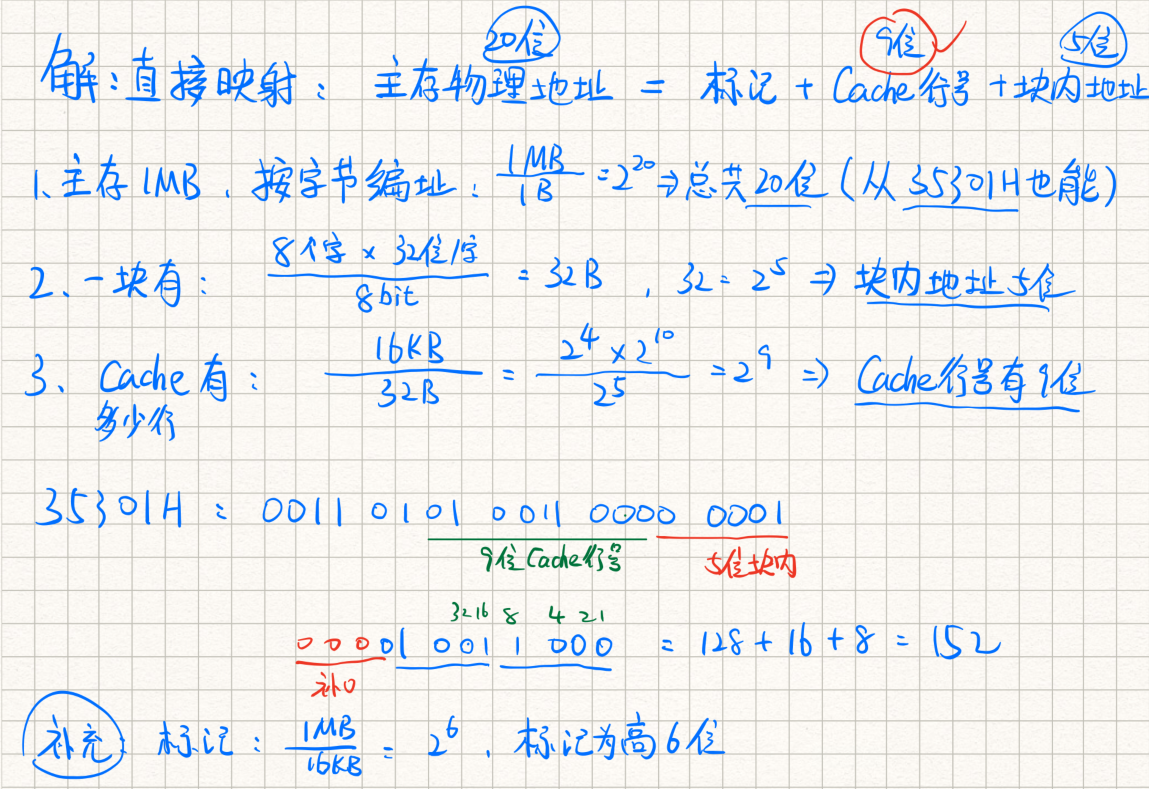 20位 9位 ✓ 5位
解：直接映射：主存物理地址 = 标记 + Cache行号 + 块内地址
1、主存1MB，按字节编址：1MB/1B = 2^20 ⇒ 总共20位（从35301H也能）
2、一块有：8个字 × 32位/字 / 8bit = 32B ，32 = 2^5 ⇒ 块内地址5位
3、Cache有：16KB/32B = 2^4 × 2^10 / 2^5 = 2^9 ⇒ Cache行号有9位
多少行
35301H ： 0011 0101 0011 0000 0001
9位Cache行号 5位块内
32 16 8 4 2 1
00001 001 1 000 = 128 + 16 + 8 = 152
补0
补充：标记：1MB/16KB = 2^6 ，标记为高6位